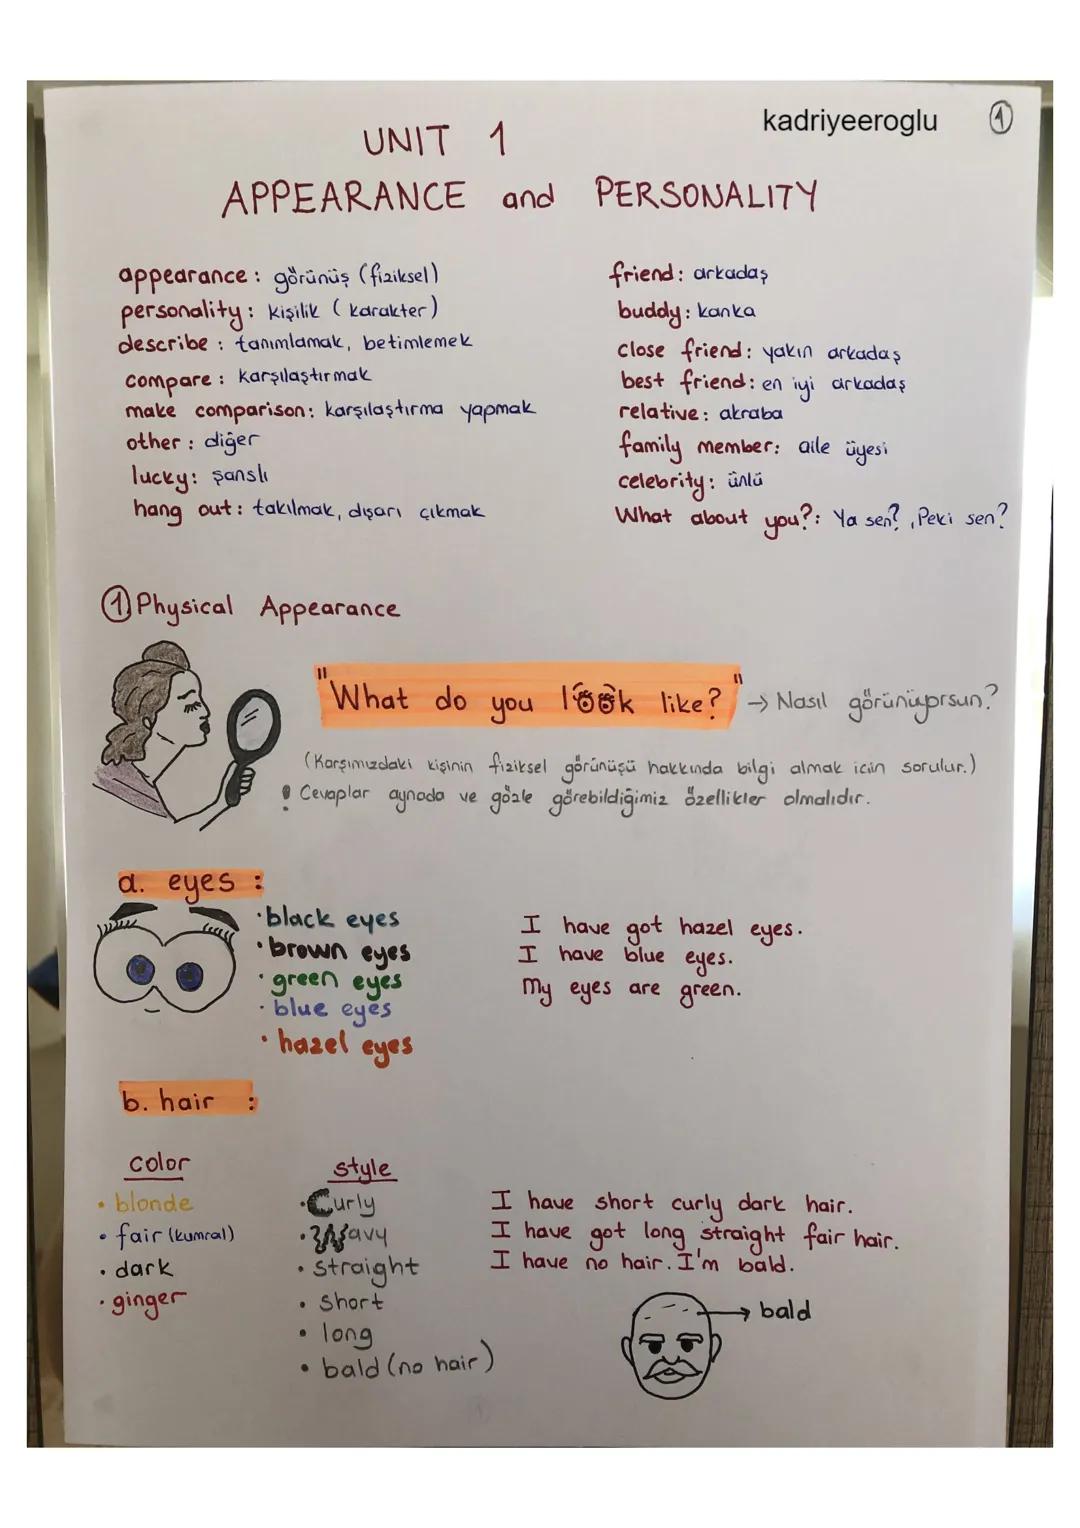 kadriyeeroglu
1
UNIT 1
APPEARANCE and PERSONALITY
appearance : görünüş (fiziksel)
personality : kişilik ( karakter)
describe : tanımlamak, betimlemek
compare : karşılaştırmak
make comparison: karşılaştırma yapmak
other : diğer
lucky: şanslı
hang out: takılmak, dışarı çıkmak
friend: arkadaş
buddy: kanka
close friend: yakın arkadaş
best friend: en iyi arkadaş
relative: akraba
family member: aile üyesi
celebrity: ünlü
What about you?: Ya sen?, Peki sen?
1) Physical Appearance
"What do you look like?" → Nasıl görünüyorsun?
(Karşımızdaki kişinin fiziksel görünüşü hakkında bilgi almak için sorulur.)
! Cevaplar aynada ve gözle görebildiğimiz özellikler olmalıdır.
a. eyes :
• black eyes
• brown eyes
• green eyes
• blue eyes
• hazel eyes
I have got hazel eyes.
I have blue eyes.
My eyes are green.
b. hair :
color
• blonde
• fair (kumral)
• dark
• ginger
style
• Curly
• Wavy
• straight
• short
• long
• bald (no hair)
I have short curly dark hair.
I have got long straight fair hair.
I have no hair. I'm bald.
→ bald